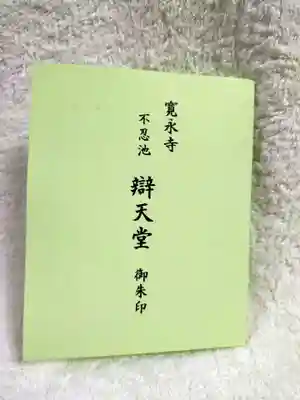 寛永寺
不忍池
辯天堂
御朱印